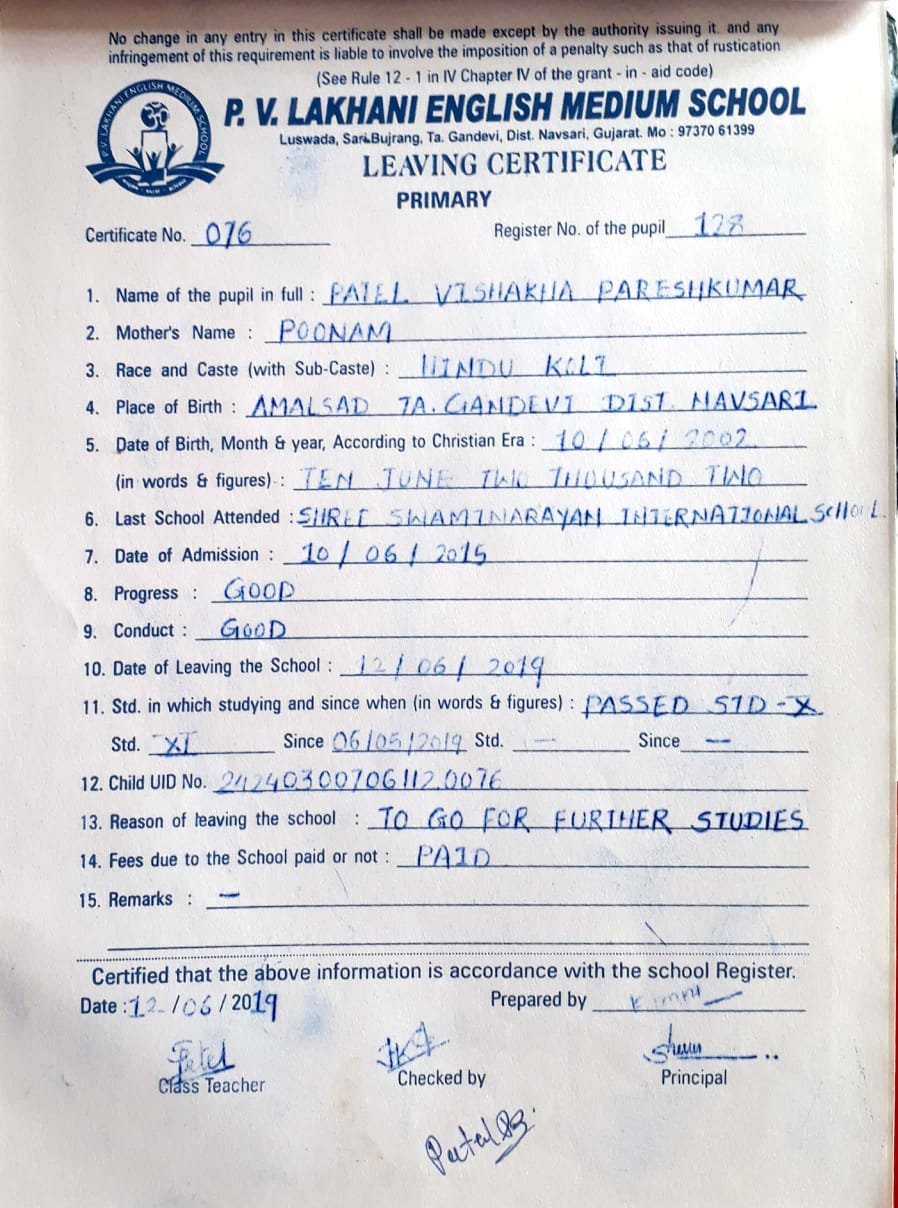 No change in any entry in this certificate shall be made except by the authority issuing it. and any
infringement of this requirement is liable to involve the imposition of a penalty such as that of rustication
(See Rule 12 - 1 in IV Chapter IV of the grant - in - aid code)
P. V. LAKHANI ENGLISH MEDIUM SCHOOL
P. V. LAKHANI ENGLISH MEDIUM SCHOOL
Luswada, Sari-Bujrang, Ta. Gandevi, Dist. Navsari, Gujarat. Mo : 97370 61399
LEAVING CERTIFICATE
PRIMARY
Certificate No. 076 Register No. of the pupil 128
1. Name of the pupil in full : PATEL VISHAKHA PARESHKUMAR
2. Mother's Name : POONAM
3. Race and Caste (with Sub-Caste) : HINDU KOLI
4. Place of Birth : AMALSAD TA. GANDEVI DIST. NAVSARI
5. Date of Birth, Month & year, According to Christian Era : 10 / 06 / 2002
(in words & figures) : TEN JUNE TWO THOUSAND TWO
6. Last School Attended : SHREE SWAMINARAYAN INTERNATIONAL SCHOOL.
7. Date of Admission : 10 / 06 / 2015
8. Progress : GOOD
9. Conduct : GOOD
10. Date of Leaving the School : 12 / 06 / 2019
11. Std. in which studying and since when (in words & figures) : PASSED STD - X
Std. XI Since 06/05/2019 Std. — Since —
12. Child UID No. 242403007061120076
13. Reason of leaving the school : TO GO FOR FURTHER STUDIES
14. Fees due to the School paid or not : PAID
15. Remarks : —
Certified that the above information is accordance with the school Register.
Date : 12 / 06 / 2019 Prepared by
Patel
Class Teacher Checked by Principal
Patel